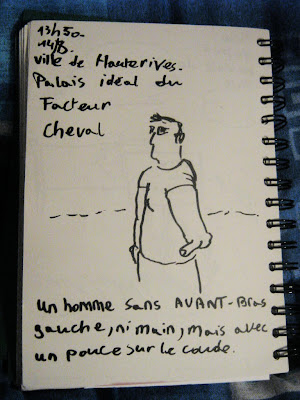 13h50.
14/8.
ville de Hauterives.
Palais idéal du
Facteur
Cheval
un homme sans AVANT-Bras
gauche, ni main, mais avec
un pouce sur le coude.